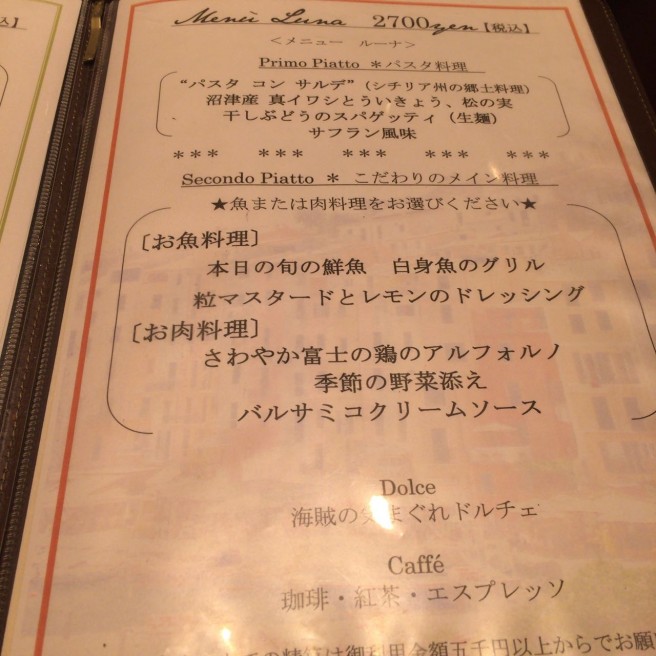 込】
Menù Luna 2700yen【税込】
＜メニュー ルーナ＞
Primo Piatto ＊パスタ料理
“パスタ コン サルデ”（シチリア州の郷土料理）
沼津産 真イワシとういきょう、松の実
干しぶどうのスパゲッティ（生麺）
サフラン風味
＊＊＊ ＊＊＊ ＊＊＊ ＊＊＊ ＊＊＊
Secondo Piatto ＊ こだわりのメイン料理
★魚または肉料理をお選びください★
〔お魚料理〕
本日の旬の鮮魚 白身魚のグリル
粒マスタードとレモンのドレッシング
〔お肉料理〕
さわやか富士の鶏のアルフォルノ
季節の野菜添え
バルサミコクリームソース
Dolce
海賊の気まぐれドルチェ
Caffé
珈琲・紅茶・エスプレッソ
は御利用金額五千円以上からでお願